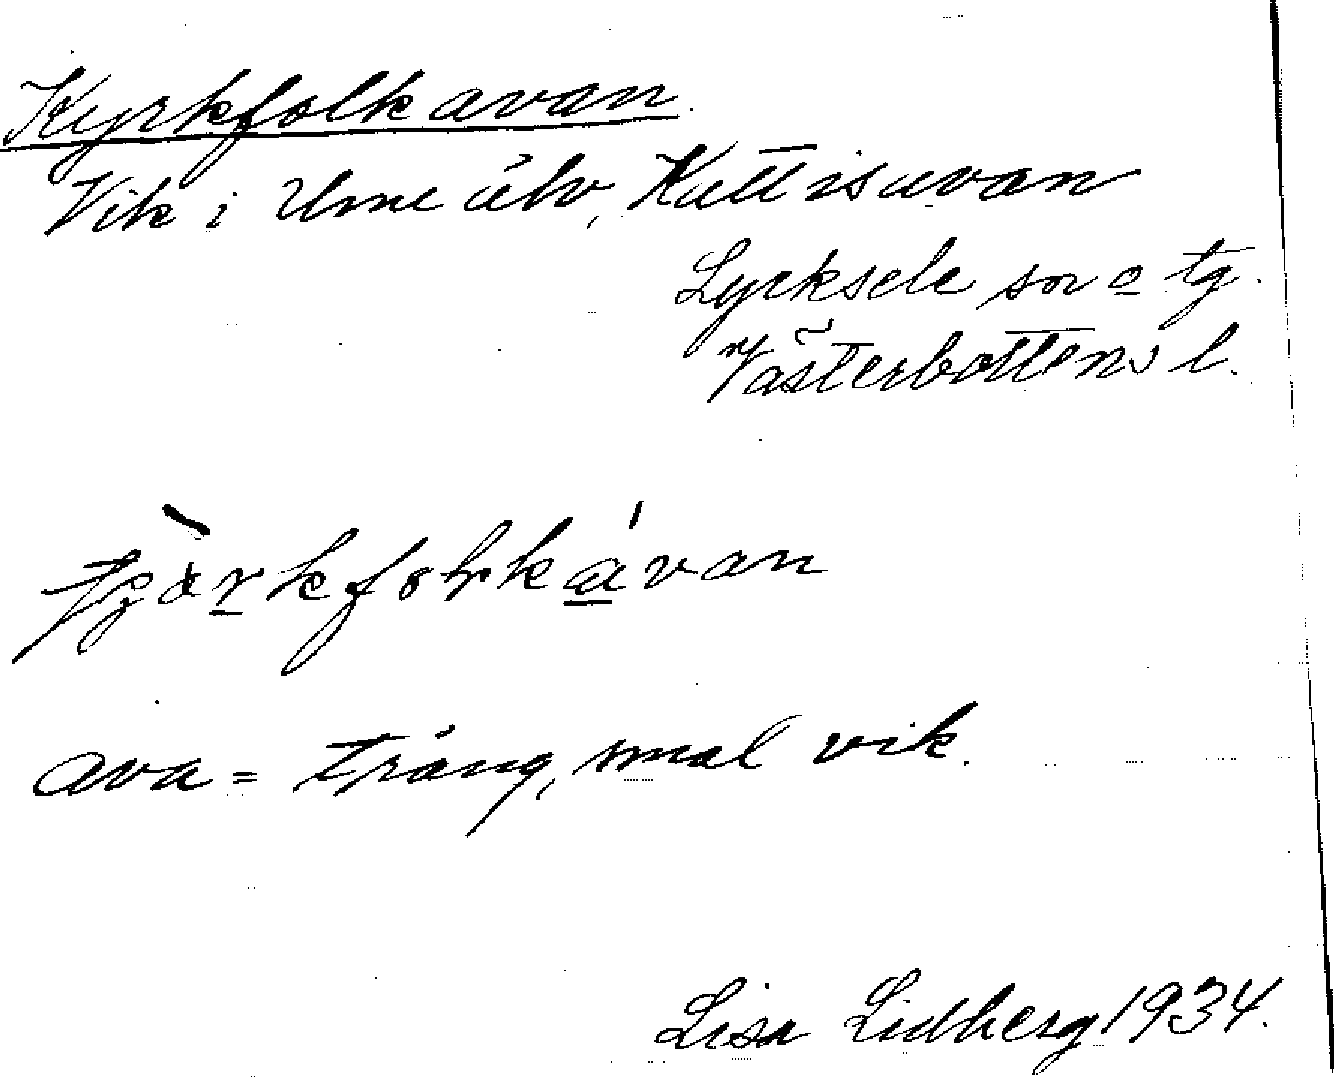 Kyrkfolkavan.
Vik i Ume älv, Kattisavan
Lycksele sn o tg.
Västerbottens l.
ava = trång, smal vik.
Lisa Lidberg 1934.